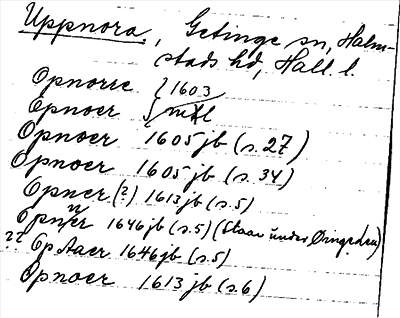 Uppnora, Getinge sn, Halm-
stads hd, Hall. l.
Opnorre } 1603
Opnoer } mtl
Opnoer 1605 jb (s. 27)
Opnoer 1605 jb (s. 34)
Opner (?) 1613 jb (s. 5)
Opner 1646 jb (s. 5) (Staar under
?? Op Aaer 1646 jb (s. 5)
Opnoer 1613 jb (s. 6)